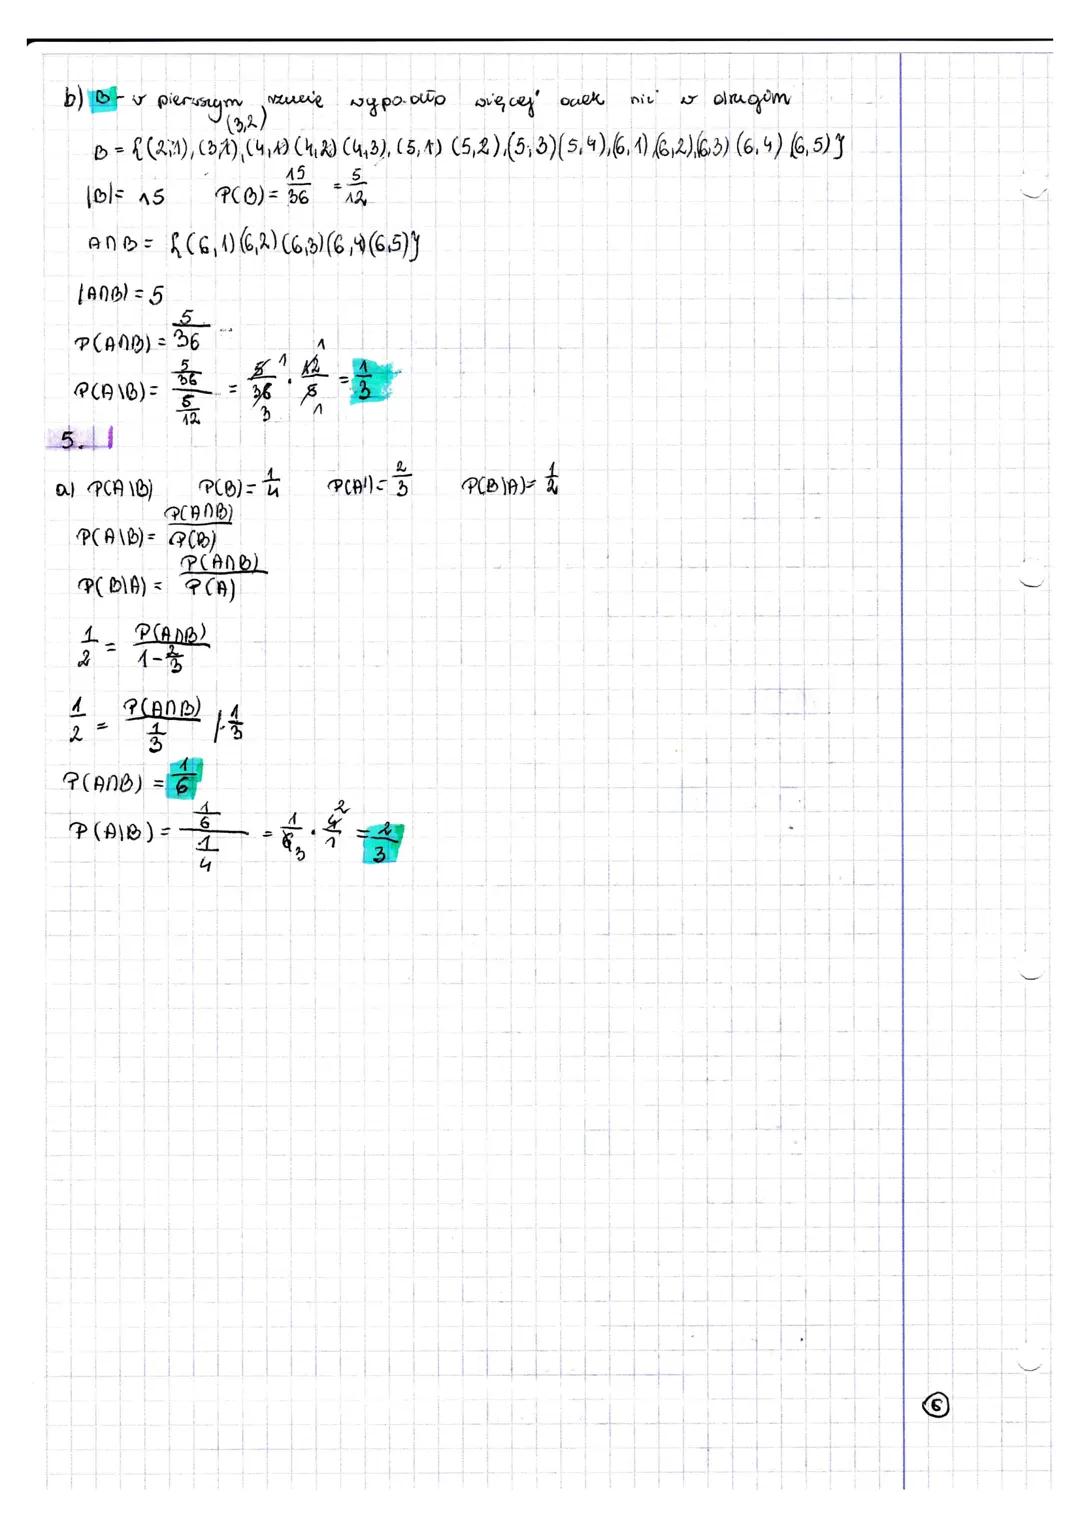 b) B - w pierwszym rzucie wypadło więcej oczek niż w drugim
(3,2)
B = {(2,1), (3,1), (4,1) (4,2) (4,3), (5,1) (5,2), (5,3) (5,4), (6,1) (6,2), (6,3) (6,4) (6,5)}
|B| = 15 P(B) = 15/36 = 5/12
A∩B = {(6,1) (6,2) (6,3) (6,4) (6,5)}
|A∩B| = 5
P(A∩B) = 5/36
P(A|B) = (5/36)/(5/12) = 5/36 · 12/5 = 1/3
5.
a) P(A|B) P(B) = 1/4 P(A') = 2/3 P(B|A) = 1/2
P(A|B) = P(A∩B)/P(B)
P(B|A) = P(A∩B)/P(A)
1/2 = P(A∩B)/(1-2/3)
1/2 = P(A∩B)/(1/3) /·1/3
P(A∩B) = 1/6
P(A|B) = (1/6)/(1/4) = 1/6 · 4/1 = 2/3
6